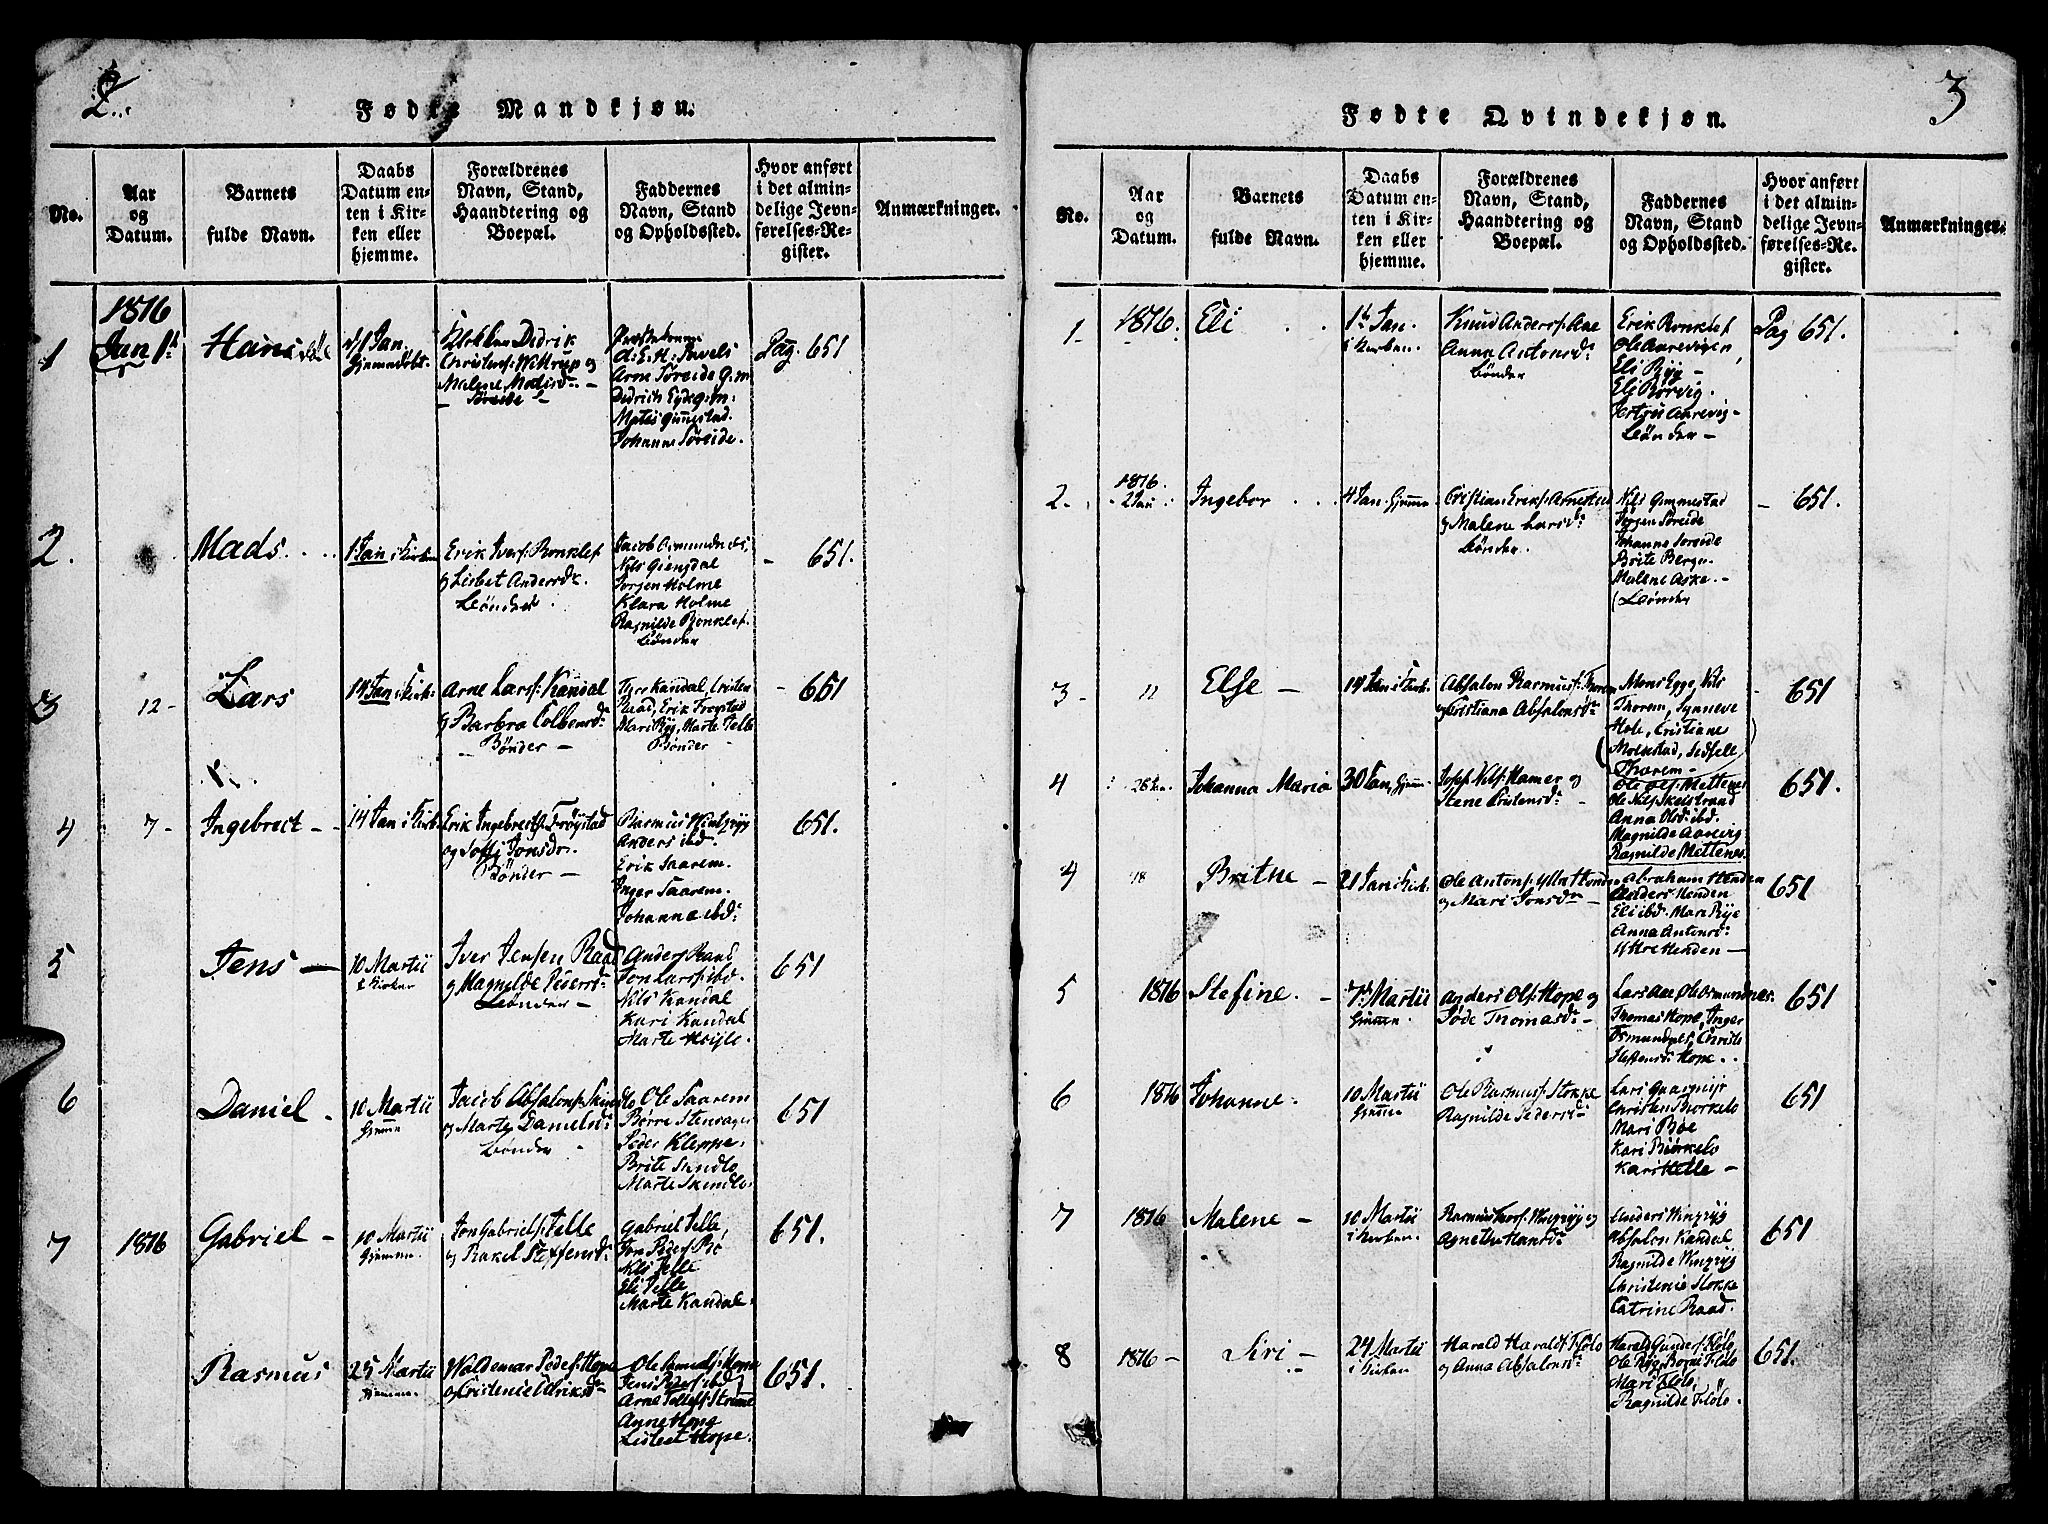 2.
Fødte Mandkjøn.
No.
Aar
og
Datum.
Barnets
fulde Navn.
Daabs
Datum en-
ten i Kir-
ken eller
hjemme.
Forældrenes
Navn, Stand,
Haandtering og
Boepæl.
Faddernes
Navn, Stand
og Opholdssted.
Hvor anført
i det almin-
delige Jevn-
førelses-Re-
gister.
Anmærkninger.
1
1816
Jan 1
Hans
Jan.
Didrik
Christens: Wittrup og
Malene
Søreide
Arne Søreide
Didrich
Mates Gimestad.
Johanne Søreide.
Pag. 651
2.
Mads
1 Jan i Kirken
Erik Ivers: Ronklef
og Lisbet Andersd.
Bønder.
Jacob Osmundnes,
Nils Giengdal
Jørgen Holme
Klara Holme
Ragnilde Ronklef.
Bønder
651.
3
12
Lars
14 Jan i Kirk:
Arne Lars: Kandal
og Barbra Colbensd
Bønder
Kandal Cristen
Raad, Erik Frøstad
Mari Ryg, Marte Telle
Bønder
651
4
7
Ingebrect
14 Jan i Kirk:
Erik Ingebrects: Frøystad
og Jonsdr.
Bønder
Rasmus
Anders ibd.
Erik Saarem.
Inger Saarem.
Johanne ibd:
651.
5
Jens
10 Martii
i Kirken
Iver Jensen Raad
og Magnilde Peders
Bønder
Anders Raad
Jon Lars: ibd.
Nils Kandal
Kari Kandal
Marte
651
6
Daniel
10 Martii
Hjemme
Jacob Absalons:
og Marte Daniels
Bønder
Ole Saarem
Børre
Peder Kleppe
Brite
Marte
651
7
1816
Gabriel
10 Martii
Hjemme.
Jon Gabriels: Telle
og Rakel Steffensd:
Gabriel Telle,
Jon Peders: Bø
Nils Telle
Eli Telle
Marte Kandal.
651.
Rasmus
25 Martii
Hjemme
Woldemar Peders: Hope
og Cristenie Didriksd
Ole
Jens Peders: ibd
Arne
Anne Hope
Lisbeet Hope.
651.
3
Fødte Qvindekjøn.
No.
Aar
og
Datum.
Barnets
fulde Navn.
Daabs
Datum en-
ten i Kir-
ken eller
hjemme.
Forældrenes
Navn, Stand,
Haandtering og
Boepæl.
Faddernes
Navn, Stand
og Opholdssted.
Hvor anført
i det almin-
delige Jevn-
førelses-Re-
gister.
Anmærkninger.
1.
1816.
Eli
1 Jan.
i Kirken.
Knud Anderss: Aae
Anna Antonsd
Bønder
Erik Ronklef
Ole Aarevigen,
Eli Ryg
Eli Rørvig.
Aarevig
Bønder
Pag 651.
2.
1816.
2 Jan
Ingebor
4 Jan Hjemme
Cristian Eriks: Arnestad
og Malene Larsd:
Bønder.
Nils Gimmestad
Jørgen Søreide
Johanne Søreide
Brite Berge.
Malene Aske.
Bønder
651.
3
11
Else
14 Jan i Kirk.
Absalon Rasmus: Thorem
og Cristiana Absalonsd
Mons Egge, Nils
Thorem, Synneve
Hole, Cristiane
Molestad,
Thorem
651
4
28 Jan.
Johanna Maria
30 Jan, Hjemm:
Nils: Hamer og
Stene Cristensd
Ole Ols: Mettenes
Ole Nils: Skeistrand
Anna Olsd: ibd.
Magnilde Aasevig
Ragnilde Mettenes.
651.
4
18
Brithe
21 Jan i Kirk.
Ole Antons: Ytre Henden
og Mari Jonsd
Abraham Henden
Anders Henden
Eli ibd. Mari Rye
Anna Antonsd:
Yttre Henden
651
5
1816
Stefine.
7 Martii
Hjemme.
Anders Ols: Hope og
Thomasd
Lars Aae Ole Osmundnes
Thomas Hope, Inger
Osmundnes, Christi
Steffens: Hope.
651
6
1816
Johanne.
10 Martii
Hjemme
Ole Rasmus: Stokke
Ragnilde Pedersd:
Lars
Christen Biørkelo
Mari Bøe
Kari Biørkelo
Kari Helle
651
7
1816
Malene
10 Martii
i Kirken
Rasmus og
Agnethe Hansd
Anders
Absalon Kandal
Ragnilde
Christenie Stokke
Catrine Raad.
651
8
1816
Siri
24 Martii
i Kirken
Harald Haralds: Fløtø
og Anna Absalonsd
Harald Gunders: Fløtø
Ole Ryg, Fløtø
Mari Fløtø
Ragnilde Fløtø.
651.